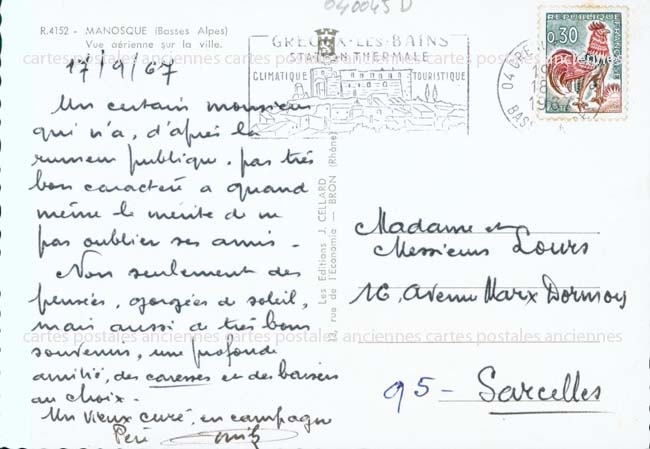 040045 D
R.4152 - MANOSQUE (Basses Alpes)
Vue aérienne sur la ville.
17/9/67
Un certain monsieur
qui n'a, d'après la
rumeur publique, pas très
bon caractère a quand
même le mérite de ne
pas oublier ses amis -
Non seulement des
pensées, gorgées de soleil,
mais aussi de très bons
souvenirs, une profonde
amitié, des caresses et des baisers
au choix -
Un vieux curé, en campagne
Père
GREOUX-LES-BAINS
STATION THERMALE
CLIMATIQUE TOURISTIQUE
REPUBLIQUE FRANÇAISE
0,30
04 GRE
18
BAS
Les Editions J. CELLARD
rue de l'Economie - BRON (Rhône)
Madame et
Messieurs Lours
16, Avenue Marx Dormoy
95 - Sarcelles
cartes postales anciennes cartes postales anciennes cartes postales anciennes
cartes postales anciennes cartes postales anciennes cartes postales anciennes